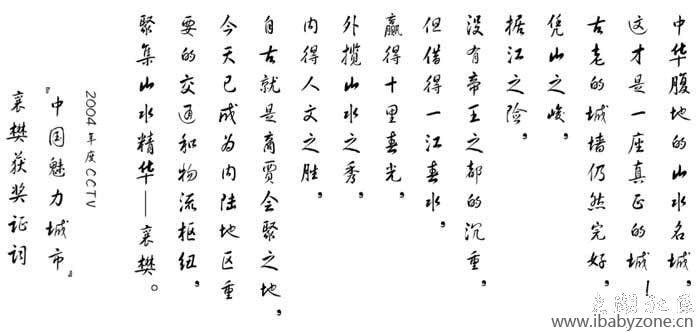 中华腹地的山水名城，
这才是一座真正的城！
古老的城墙仍然完好，
凭山之峻，
据江之险，
没有帝王之都的沉重，
但借得一江春水，
赢得十里春光，
外揽山水之秀，
内得人文之胜，
自古就是商贾会聚之地，
今天已成为内陆地区重
要的交通和物流枢纽，
聚集山水精华——襄樊。
2004年度CCTV
“中国魅力城市”
襄樊获奖证词
www.ibabyzone.cn